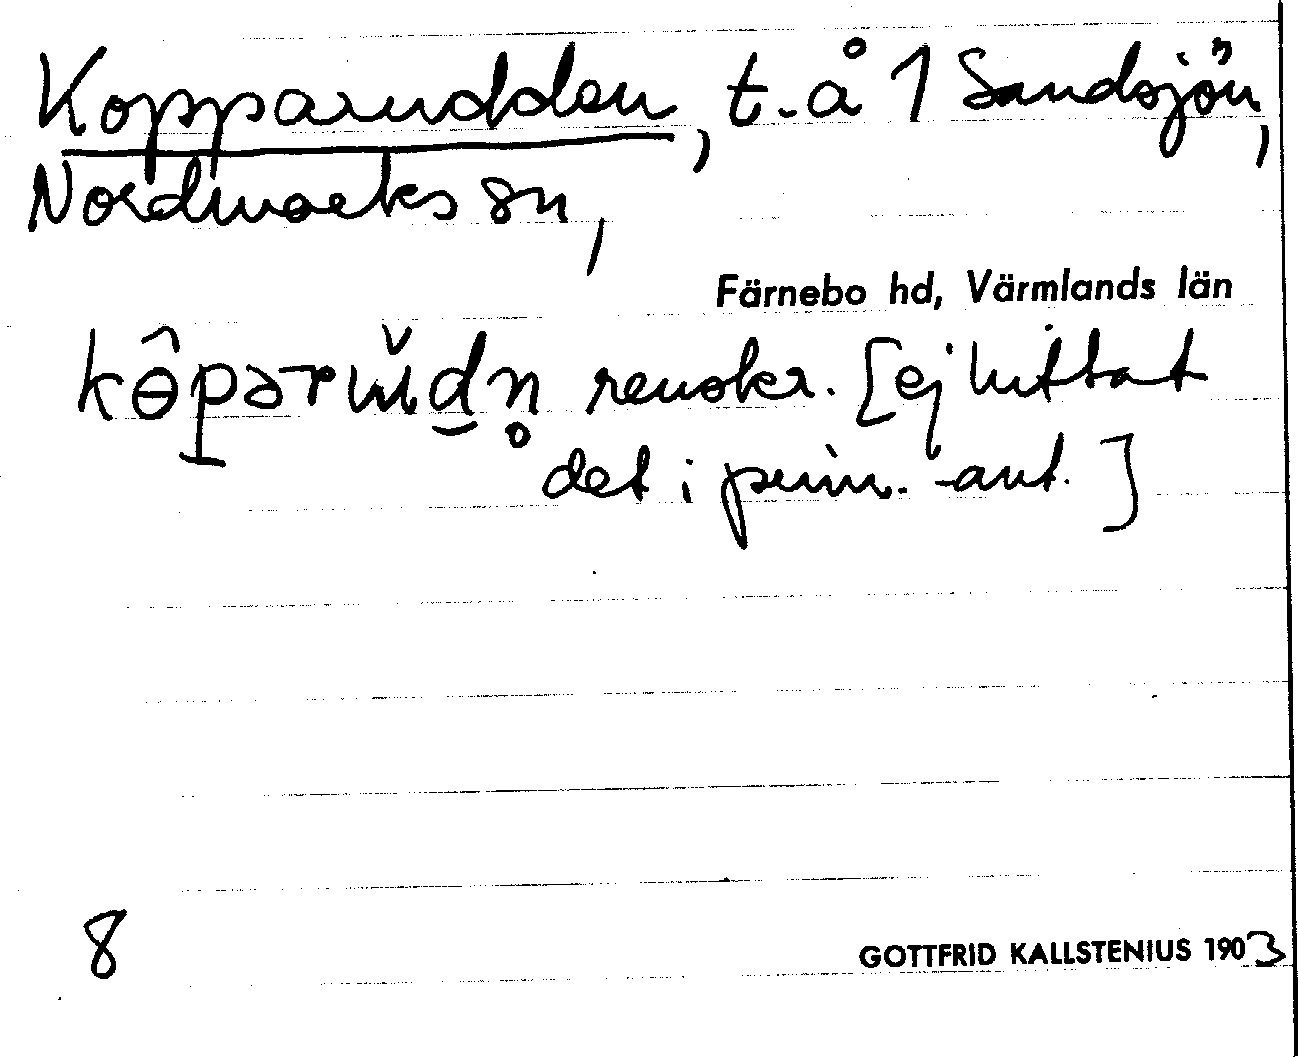 Kopparudden, t. å 1 Sandsjön,
Nordmarks sn,
Färnebo hd, Värmlands län
kɵ̂pəruĭdn̥ renskr. [ej hittat
det i prim.-ant.]
8
GOTTFRID KALLSTENIUS 1903